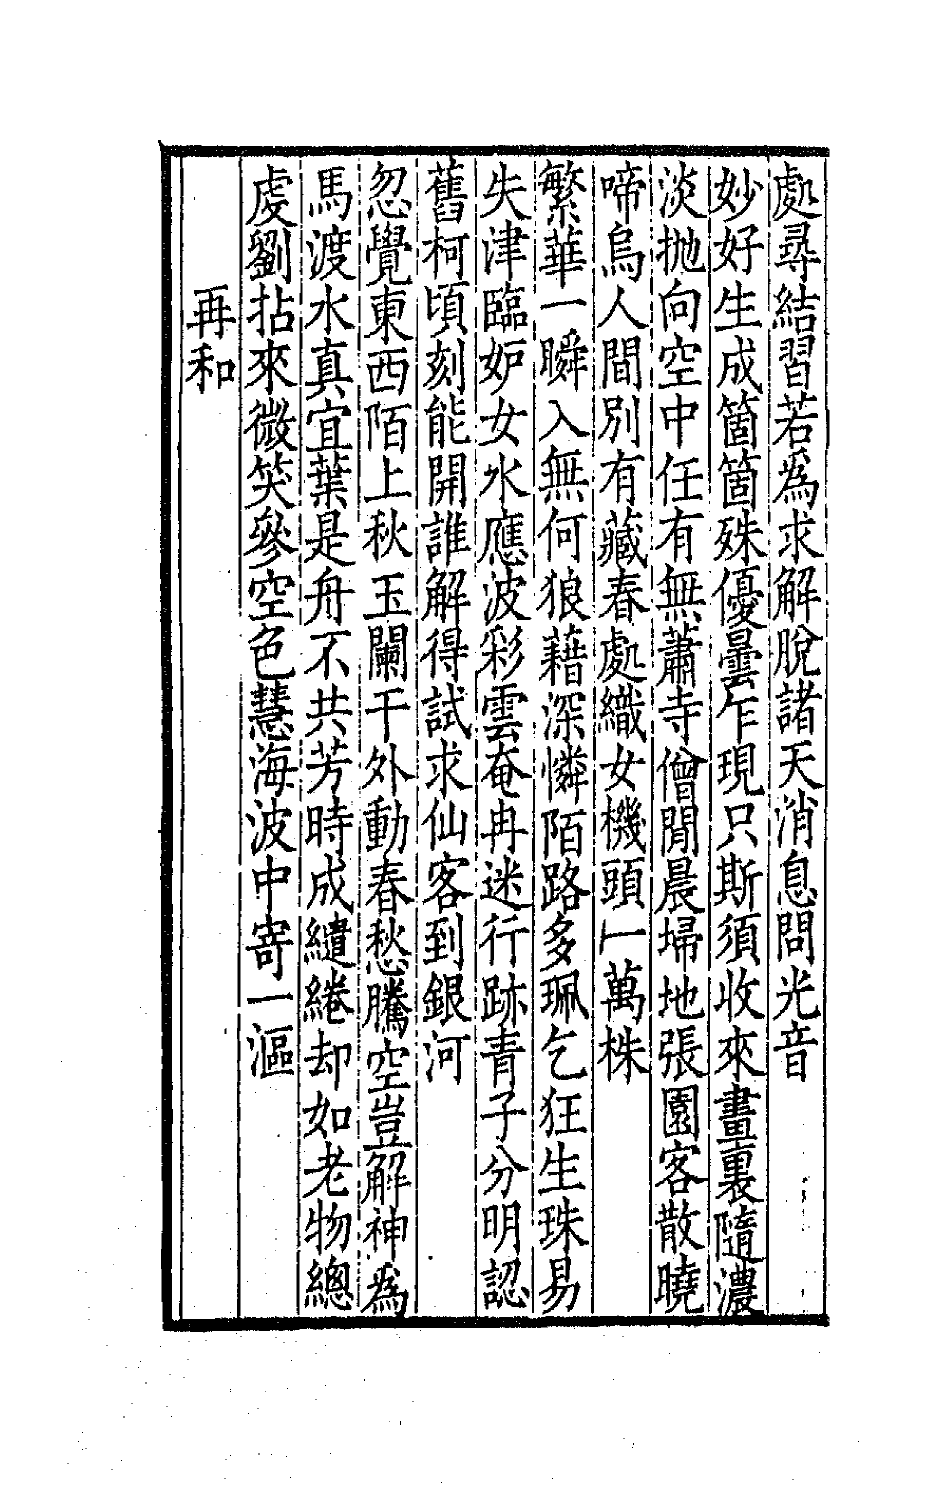 處尋結習若爲求解脫諸天消息問光音
妙好生成箇箇殊優曇乍現只斯須收來畫裏隨濃
淡抛向空中任有無蕭寺僧閒晨埽地張園客散曉
啼烏人間別有藏春處織女機頭一萬株
繁華一瞬入無何狼藉深憐陌路多珮乞狂生珠易
失津臨妒女水應波彩雲奄冉迷行跡青子分明認
舊柯頃刻能開誰解得試求仙客到銀河
忽覺東西陌上秋玉闌干外動春愁騰空豈解神爲
馬渡水真宜葉是舟不共芳時成繾綣却如老物總
虔劉拈來微笑參空色慧海波中寄一漚
再和